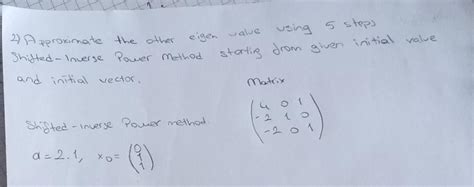 2) Approximate the other eigen value using 5 steps
Shifted-Inverse Power Method starting from given initial value
and initial vector.
Matrix
Shifted-Inverse Power method
( 4 0 1
-2 1 0
-2 0 1 )
α=2.1, x₀= ( 0
1
1 )